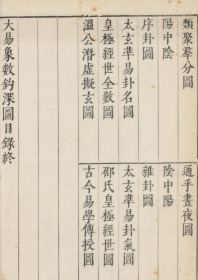 類聚羣分圖
通乎晝夜圖
陽中陰
陰中陽
序卦圖
雜卦圖
太玄準易卦名圖
太玄準易卦氣圖
皇極經世全數圖
邵氏皇極經世圖
溫公潛虛擬玄圖
古今易學傳授圖
大易象數鈎深圖目錄終